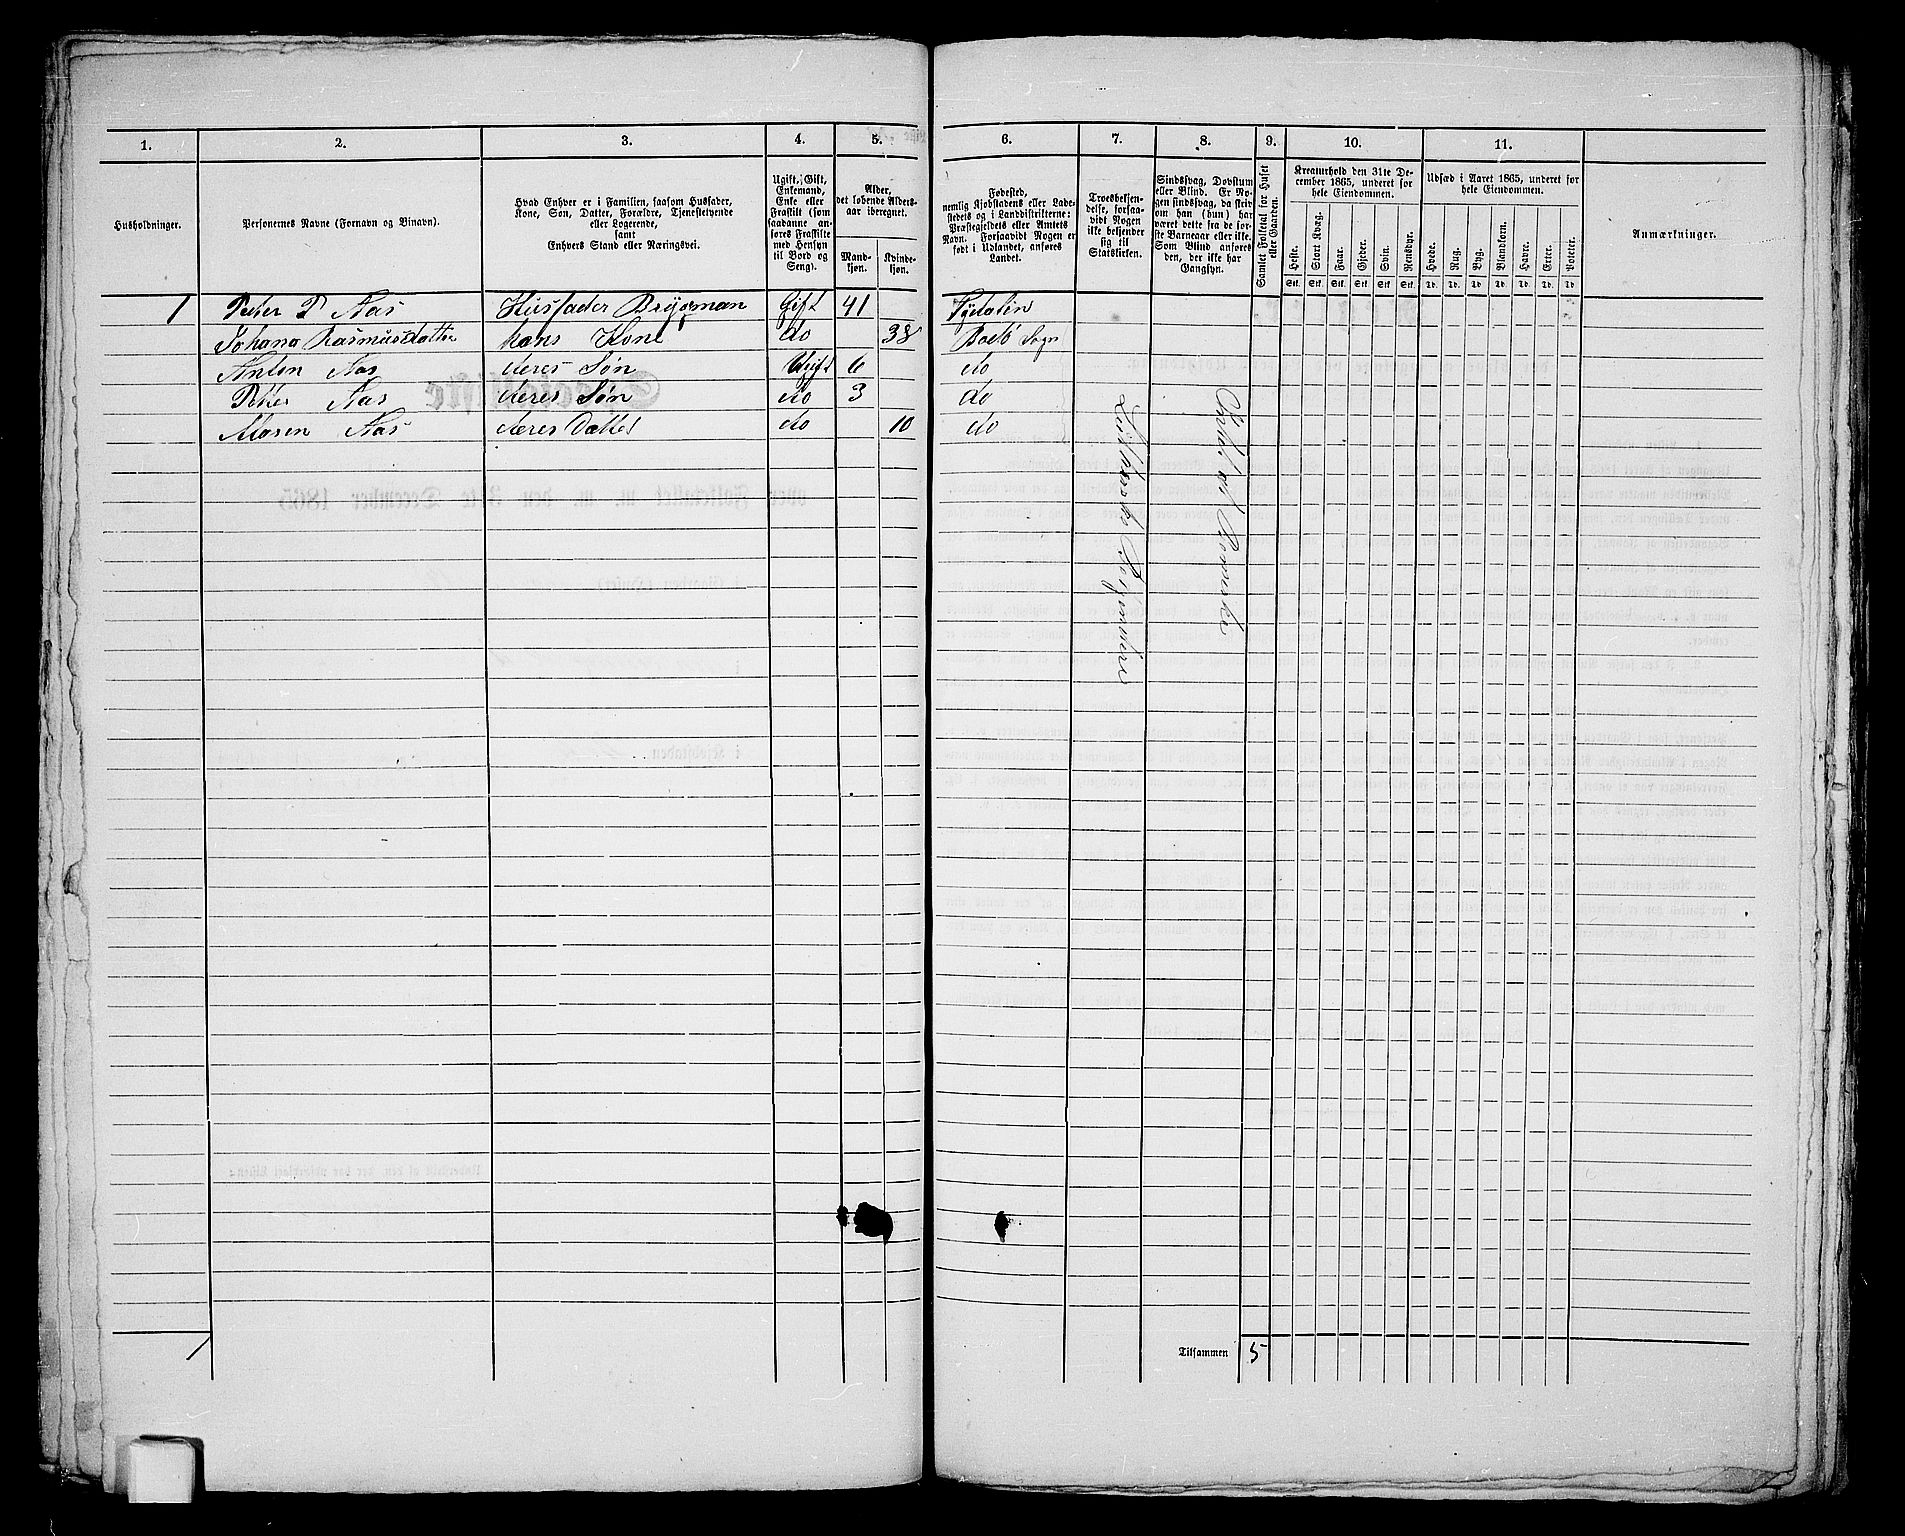 1. 2. 3. 4. 5. 6. 7. 8. 9. 10. 11.
Husholdninger.
Personernes Navne (Fornavn og Binavn).
Hvad Enhver er i Familien, saasom Husfader,
Kone, Søn, Datter, Forældre, Tjenestetyende
eller Logerende,
samt
Enhvers Stand eller Næringsvei.
Ugift, Gift,
Enkemand,
Enke eller
Fraskilt (som
saadanne an-
føres Fraskilte
med Hensyn
til Bord og
Seng).
Alder,
det løbende Alders-
aar iberegnet.
Mand-
kjøn.
Kvinde-
kjøn.
Fødested,
nemlig Kjøbstadens eller Lade-
stedets og i Landdistrikterne:
Præstegjeldets eller Amtets
Navn. Forsaavidt Nogen er
født i Udlandet, anføres
Landet.
Troesbekjen-
delse, forsaa-
vidt Nogen
ikke bekjender
sig til
Statskirken.
Sindssvag, Døvstum
eller Blind. Er No-
gen sindssvag, da skriv
om han (hun) har
været dette fra de før-
ste Barneaar eller ikke.
Som Blind anføres
den, der ikke har
Gangsyn.
Samlet Folketal for Huset
eller Gaarden.
Kreaturhold den 31te De-
cember 1865, underet for
hele Eiendommen.
Heste. Stort Kvæg. Faar. Gjeder. Sviin. Rensdyr.
Stk. Stk. Stk. Stk. Stk. Stk.
Udsæd i Aaret 1865, underet for
hele Eiendommen.
Hvede. Rug. Byg. Blandkorn. Havre. Erter. Poteter.
Td. Td. Td. Td. Td. Td. Td.
Anmærkninger.
1 Peder P Aas Husfader Brygman Gift 41
Johana Rasmusdatter hans Kone do 38 Bodø Sogn
Anton Aas deres Søn Ugift 6 do
Peter Aas deres Søn do 3 do
Aas deres Datter do 10 do
Tilsammen 5